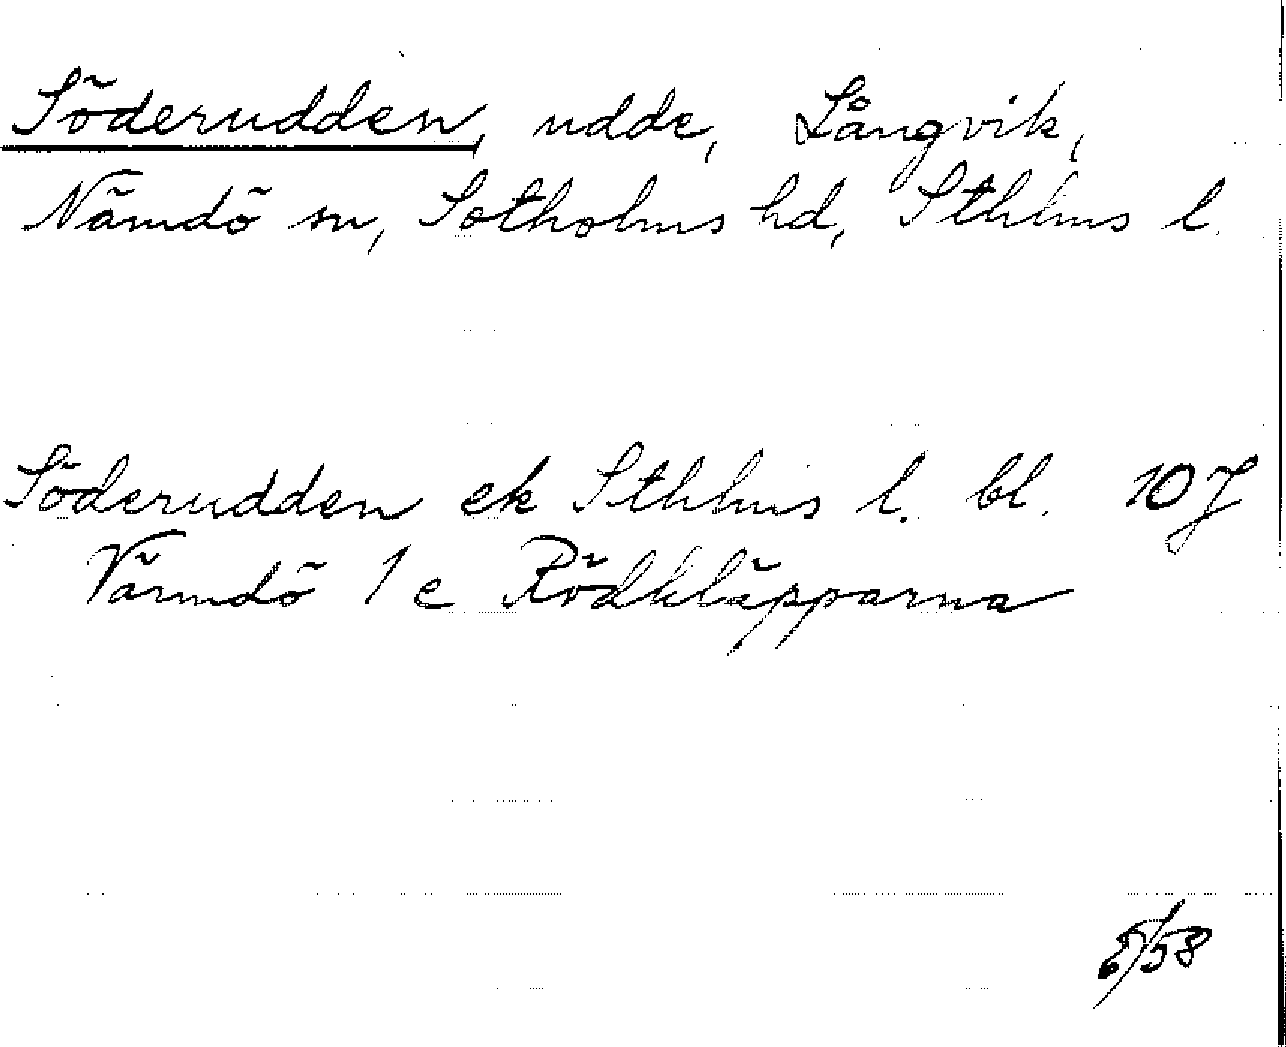 Söderudden, udde, Långvik,
Nämdö sn, Sotholms hd, Sthlms l.
Söderudden ek Sthlms l. bl. 10J
Värmdö 1 c Rödkläpparna
/58